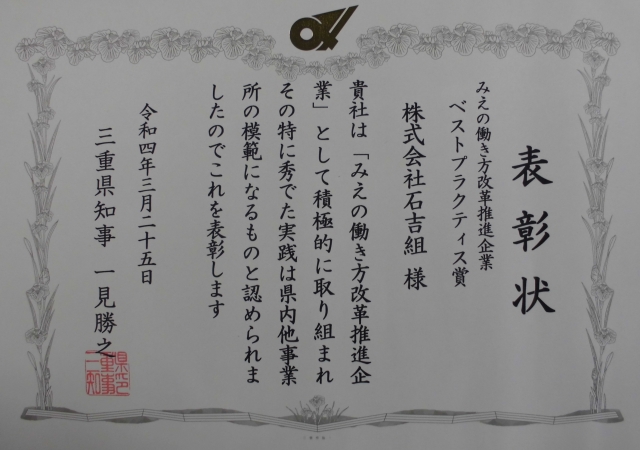 表彰状
みえの働き方改革推進企業
ベストプラクティス賞
株式会社石吉組 様
貴社は「みえの働き方改革推進企
業」として積極的に取り組まれ
その特に秀でた実践は県内他事業
所の模範になるものと認められま
したのでこれを表彰します
令和四年三月二十五日
三重県知事 一見勝之